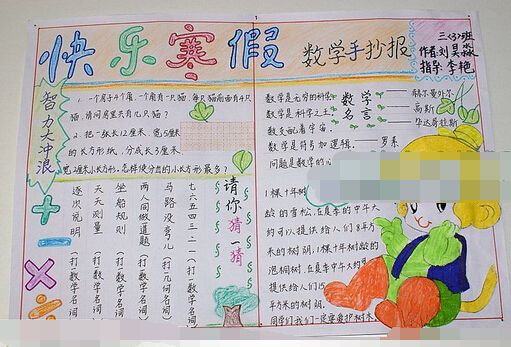 快乐寒假
数学手抄报
三〈3〉班
作者:刘昊淼
指导:李艳
智力大冲浪
1.一个房子4个角,一个角有一只猫,每只猫前面有4只
猫,请问房里共有几只猫?
2.把一张长12厘米、宽5厘米
的长方形纸,分成长3厘米
宽2厘米小长方形,怎样使分出的小长方形最多?
请你猜一猜
七六五四三二一(打一数学名词)
马路没弯儿(打几何名词)
两人同做道题(打一数学名词)
坐船规则(打一数学名词)
天天测量(打数学名词)
逐次说明(打一数学名词)
数学名言
数学是无穷的科学——赫尔曼外尔
数学是科学之王——高斯
数支配着宇宙。——毕达哥拉斯
数学是符号加逻辑。——罗素
问题是数学的心
1棵十年树
龄的雪松,在夏季的中午大
约可以提供给人们8平方
米的树荫,1棵十年树龄的
泡桐树,在夏季中午大约
提供给人们15
平方米的树荫。
同学们我们一定要爱护树木